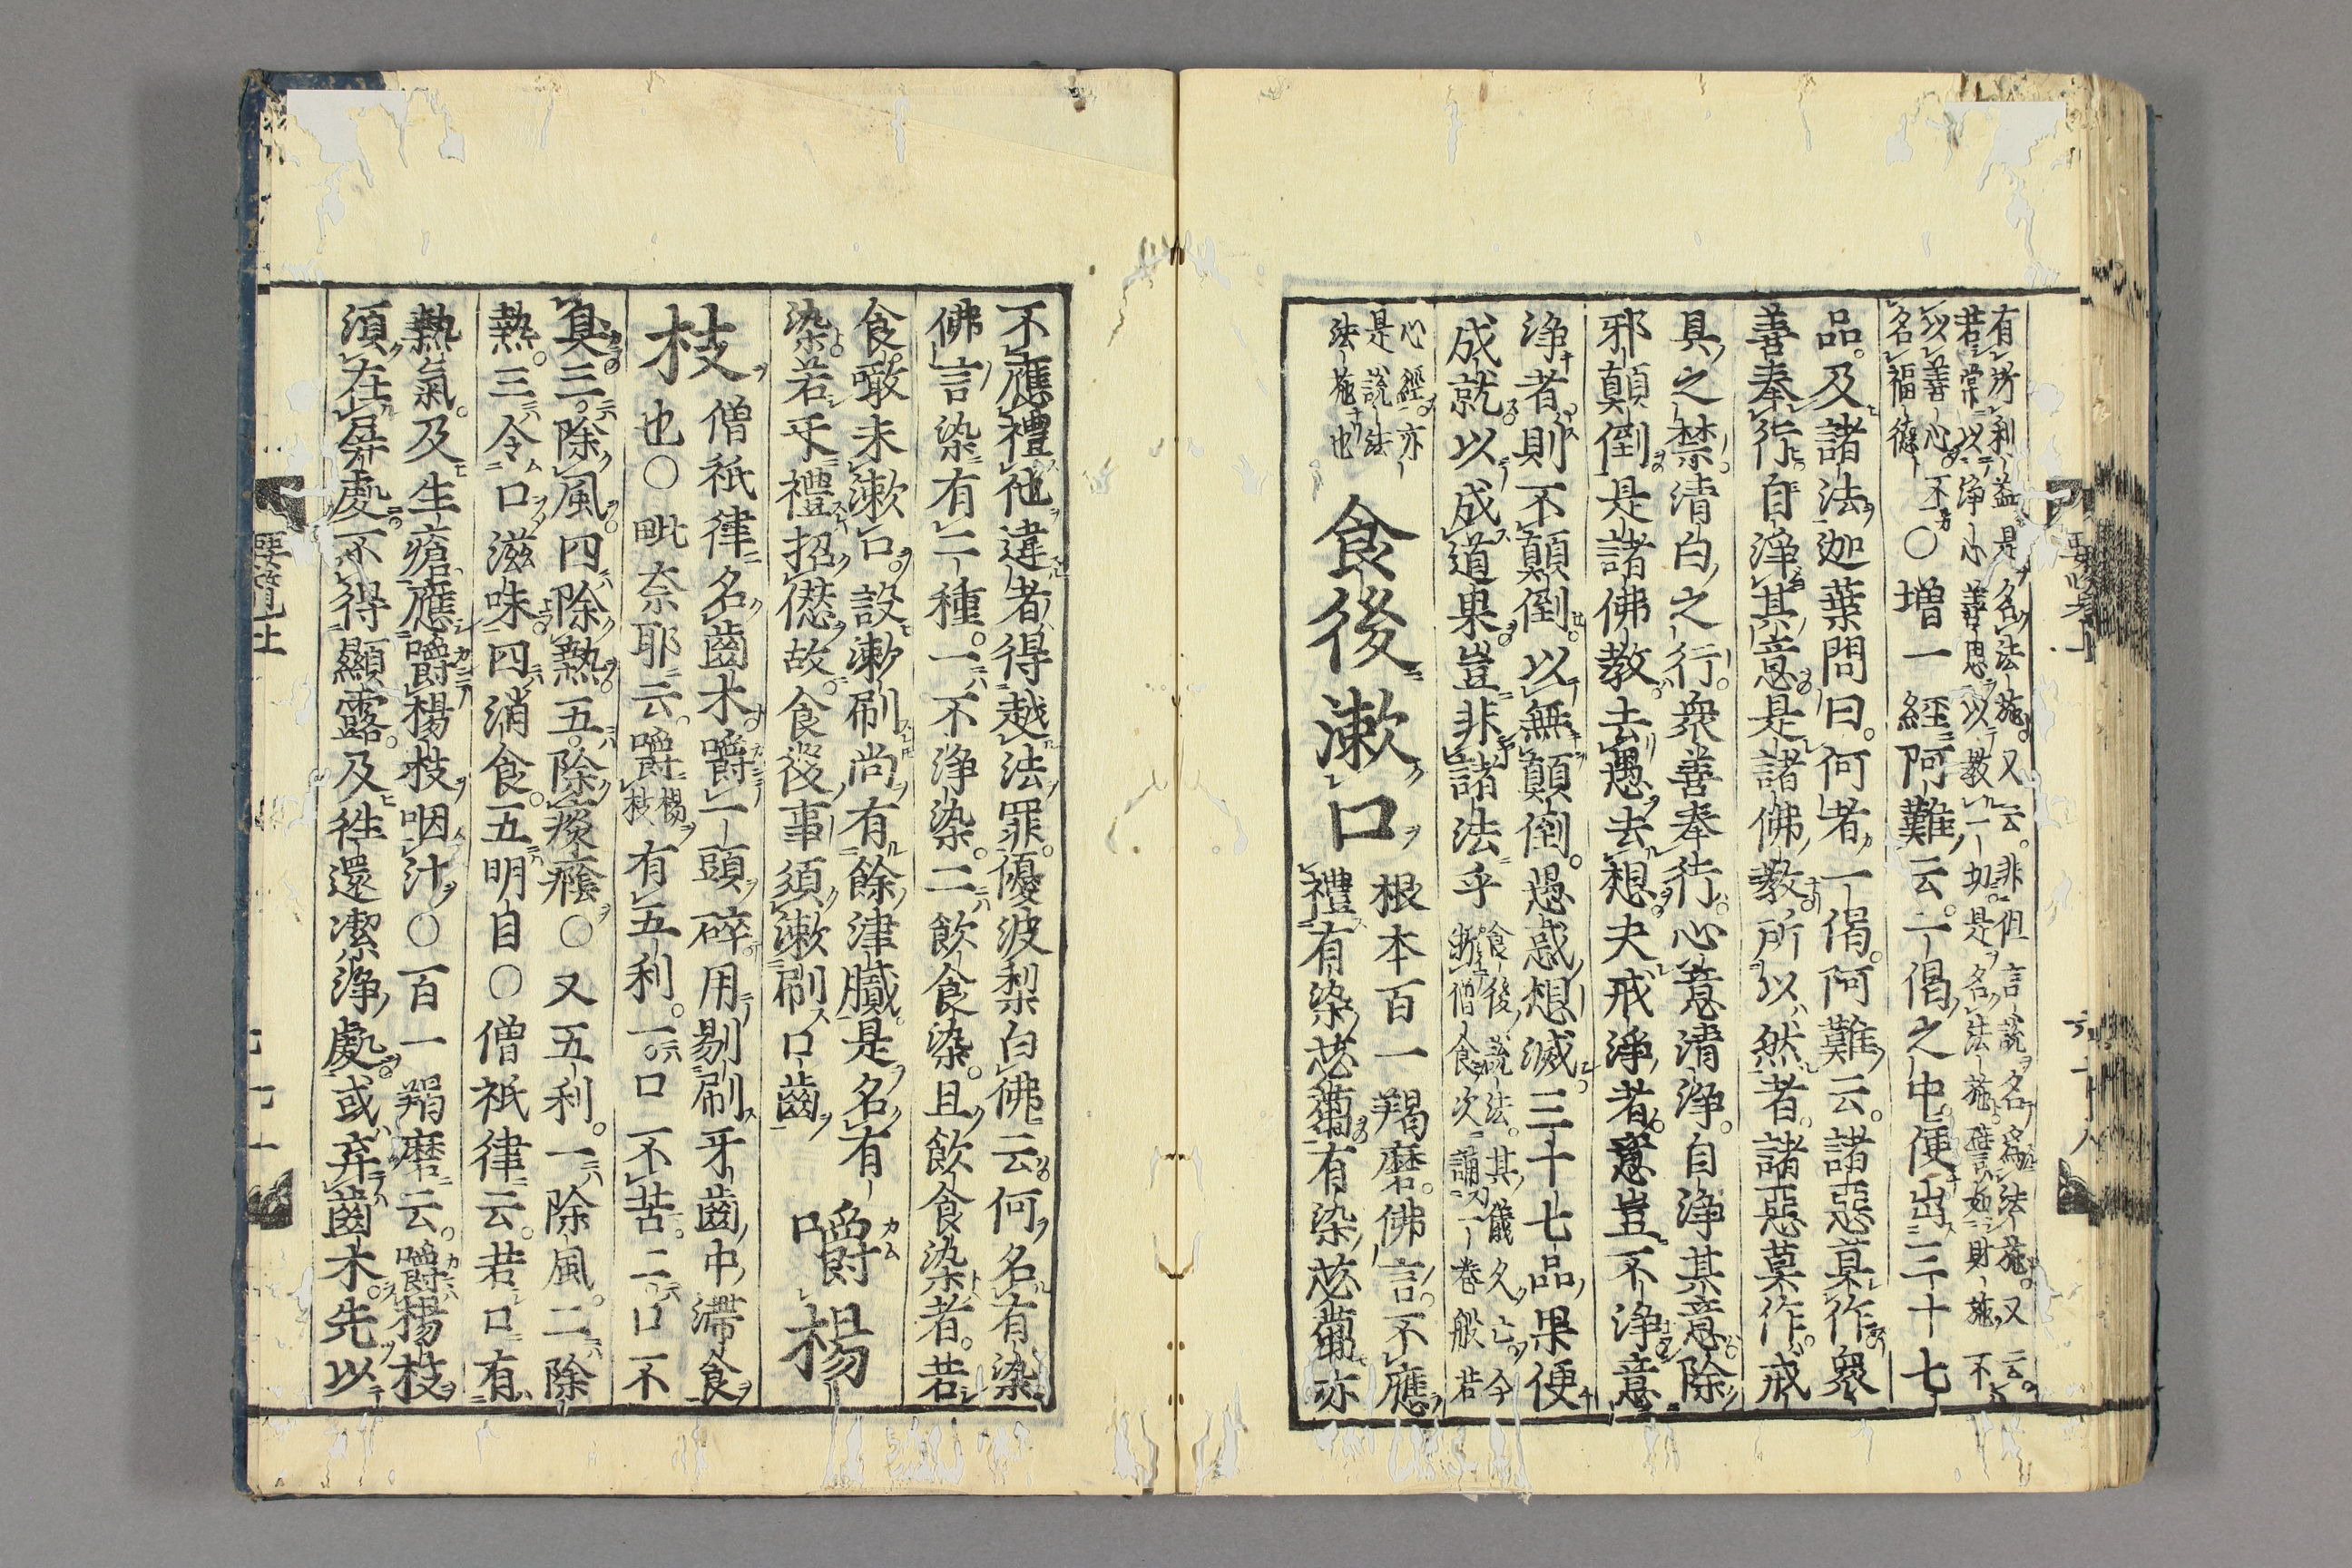 有所利益是名法施又云非但言說名爲法施又云
若常以淨心善思以教一切是名法施譬如財施不
以善心不
名福德○增一經阿難云二偈之中便出三十七
品及諸法迦葉問曰何者一偈阿難云諸惡莫作衆
善奉行自淨其意是諸佛教所以然者諸惡莫作戒
具之禁清白之行衆善奉行心意清淨自淨其意除
邪顛倒是諸佛教去愚去想夫戒淨者意豈不淨意
淨者則不顛倒以無顛倒愚惑想滅三十七品果便
成就以成道果豈非諸法乎
食後說法其儀久亡今
斷僧食次誦一卷般若
心經亦
是說法
法施也
食後漱口
根本百一羯磨佛言不應
禮有染苾蒭有染苾蒭亦
不應禮他違者得越法罪優波梨白佛云何名有染
佛言染有二種一不淨染二飲食染且飲食染者若
食噉未漱口設漱刷尚有餘津膩是名有
染若受禮招僽故食後事須漱刷口齒
嚼楊
枝
僧祇律名齒木嚼一頭碎用剔刷牙齒中滯食
也○毗奈耶云嚼楊枝有五利一口不苦二口不
臭三除風四除熱五除痰癊○又五利一除風二除
熱三令口滋味四消食五明目○僧祇律云若口有
熱氣及生瘡應嚼楊枝咽汁○百一羯磨云嚼楊枝
須在屏處不得顯露及往還潔淨處或弃齒木先以
要覽上